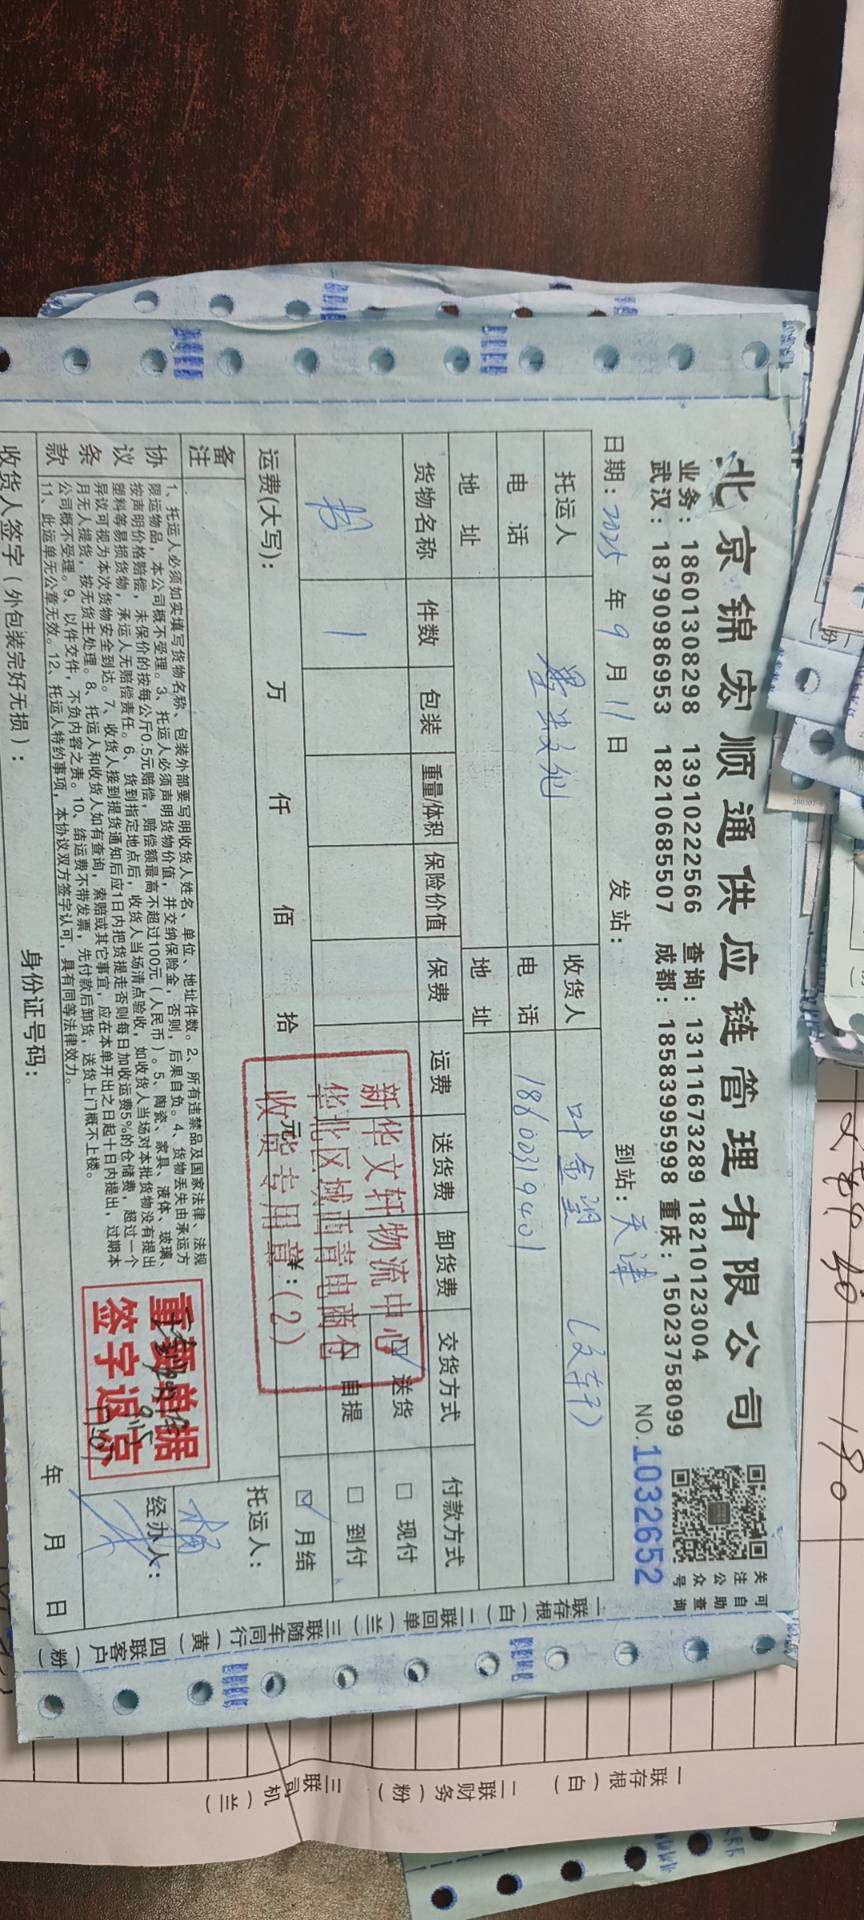 北京锦宏顺通供应链管理有限公司
业务：18601308298 13910222566 查询：13111673289 18210123004
武汉：18790986953 18210685507 成都：18583995998 重庆：15023758099
关注公众号
可自助查询
日期：2025年9月11日 发站： 到站：天津 NO.1032652
托运人 收货人 叶金玺 (文轩)
电话 电话 18600319401
地址 地址
货物名称 件数 包装 重量/体积 保险价值 保费 运费 送货费 卸货费 交货方式 付款方式
书 1 ☑送货 □自提 □现付 □到付 ☑月结
运费(大写)： 万 仟 佰 拾 元 ¥：
新华文轩物流中心
华北区域西青电商仓
收货专用章(2)
备注
托运人：
经办人：
协议条款
1、托运人必须如实填写货物名称、包装外部要写明收货人姓名、单位、地址件数。2、所有违禁品及国家法律、法规
限运物品，本公司概不受理。3、托运人必须声明货物价值，并交纳保险金，否则，后果自负。4、货物丢失由承运方
按声明价格赔偿，未保价的按每公斤0.5元赔偿，赔偿额最高不超过100元（人民币）。5、陶瓷、家具、液体、玻璃、
塑料等易损货物，承运人无赔偿责任。6、货到指定地点后，收货人当场清点验收，如收货人当场对本批货物没有提出
异议可视为本次货物安全到达。7、收货人接到提货通知后应1日内把货提走否则每日加收运费5%的仓储费，超过一个
月无人提货，按无货主处理。8、托运人和收货人如有查询，索赔或其它事宜，应在本单开出之日起十日内提出，过期本
公司概不受理。9、以件交件，不负内容之责。10、结运费不带发票，先付款后卸货，送货上门概不上楼。
11、此运单无公章无效。12、托运人特约事项，本协议双方签字认可，具有同等法律效力。
收货人签字（外包装完好无损）： 身份证号码： 年 月 日
一联存根(白) 二联回单(兰) 三联随车同行(黄) 四联客户(粉)
190
一联存根(白) 二联财务(粉) 三联司机(兰)